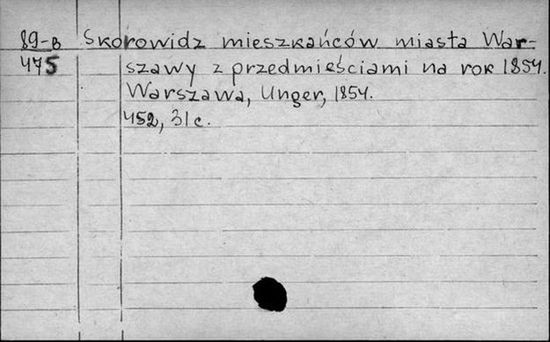 89-в Skorowidz mieszkańców miasta War-
475 szawy z przedmieściami na rok 1854.
Warszawa, Unger, 1854.
452, 31 c.